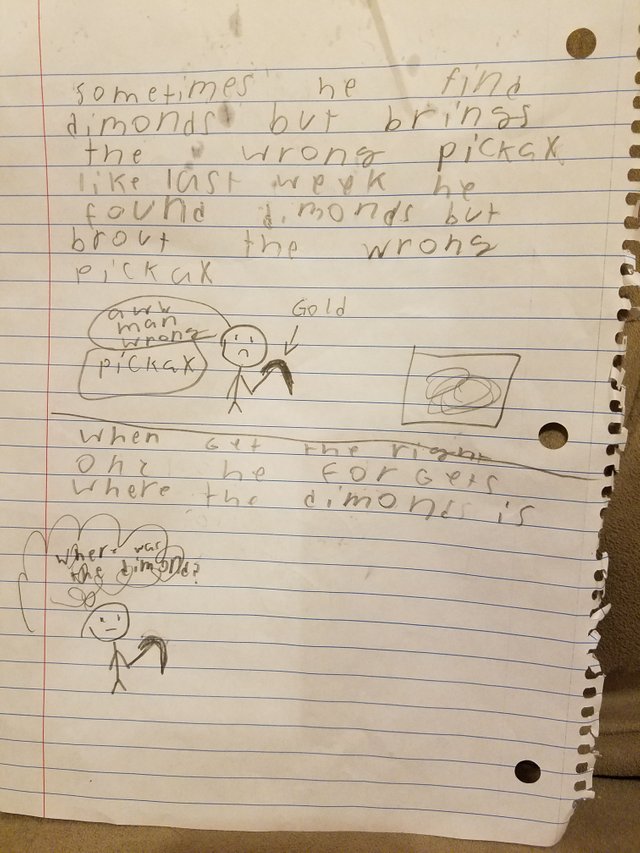 sometimes he find
dimonds but brings
the wrong pickax
like last week he
found dimonds but
brout the wrong
pickax
aww
man
wrong
pickax
Gold
when get the right
one he forgets
where the dimonds is
where was
the dimond?